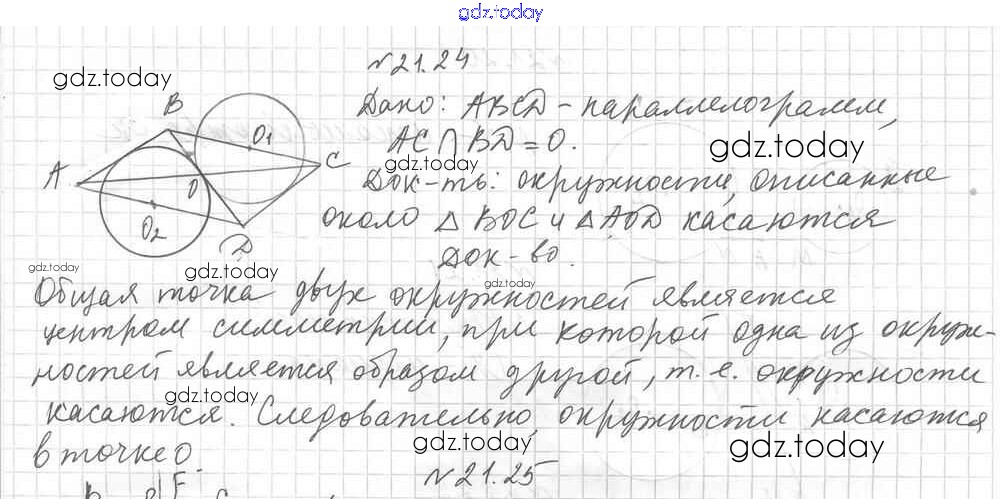 gdz.today
№21.24
gdz.today
Дано: ABCD - параллелограмм,
AC ∩ BD = O.
gdz.today
gdz.today
B
O1
C
A
O
O2
D
Док-ть: окружности, описанные
около △ BOC и △ AOD касаются
Док-во.
gdz.today
gdz.today
gdz.today
Общая точка двух окружностей является
центром симметрии, при которой одна из окруж-
ностей является образом другой, т. е. окружности
gdz.today
касаются. Следовательно, окружности касаются
в точке O.
gdz.today
gdz.today
№21.25